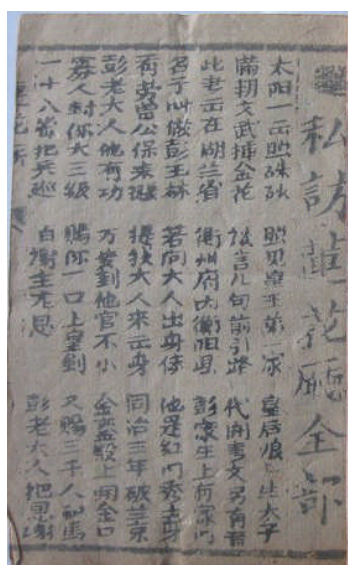 私訪蓮花廳全部
太阳一出照 照见皇王弟一家 皇后娘々生太子
满朝文武插金花 言几句前引路 代開書文另有音
此老出在湖兰省 衡州府内衡阳县 彭家生上有家门
名子叫做彭玉林 若问大人出身 他是红门秀士身
有曾公保来 提扶大人来出身 同治三年破兰京
彭老大人他有功 万岁封他官不小 金銮殿上開金口
寡人封你大三級 賜你一口上皇剑 又賜三千人和馬
一十八省把兵巡 谢主龙恩 彭老大人把恩謝